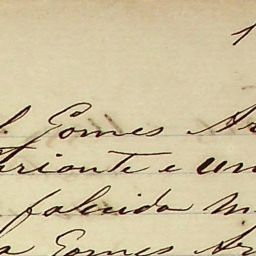 1
l. Gomes Ar
teriante e um
falecida M
a Gomes Ar